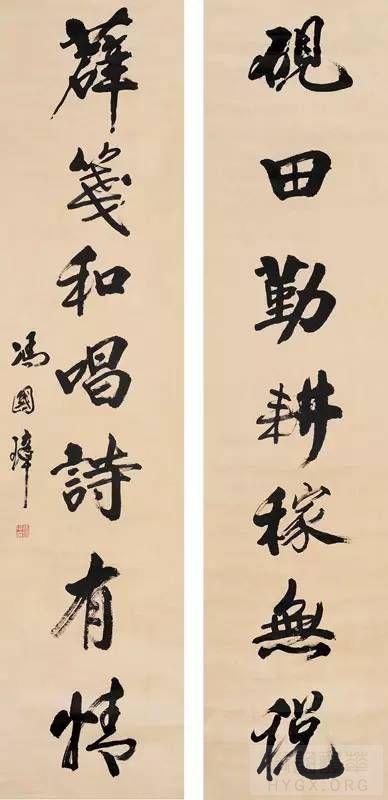 硯田勤耕稼無税
薛箋和唱詩有情
馮國璋
HYGX.ORG